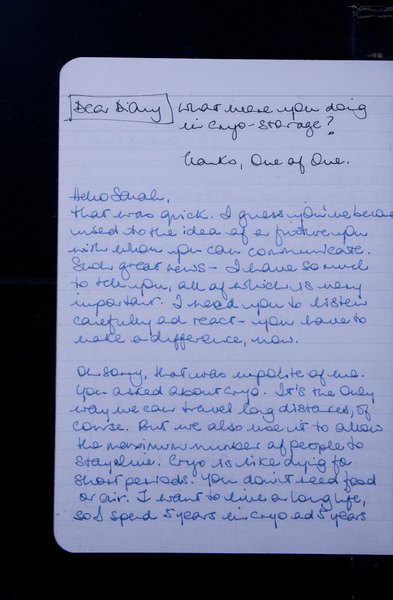 Dear Diary
What were you doing
in cryo-storage?
Thanks, One of One.
Hello Sarah,
that was quick. I guess you've become
used to the idea of a future you
with whom you can communicate.
Such great news - I have so much
to tell you, all of which is very
important. I need you to listen
carefully ad react - you have to
make a difference, now.
Oh sorry, that was impolite of me.
You asked about cryo. It's the only
way we can travel long distances, of
course. But we also use it to allow
the maximum number of people to
stay alive. Cryo is like dying for
short periods. You don't need food
or air. I want to live a long life,
so I spend 5 years in cryo ad 5 years